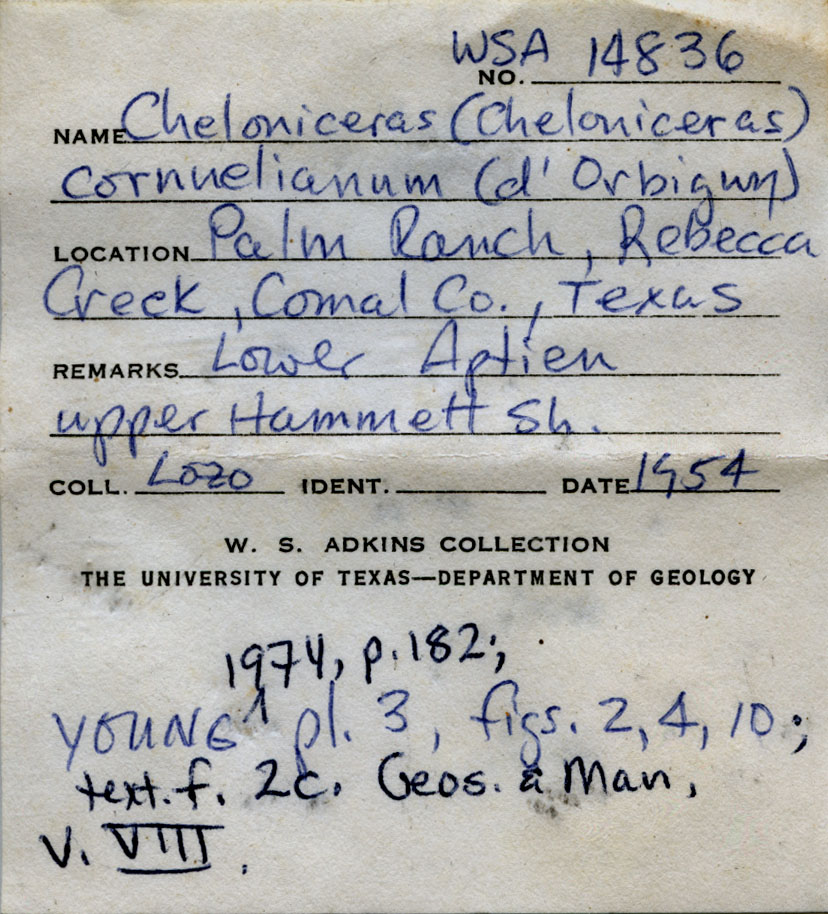 WSA 14836
NO.
NAME Cheloniceras (Cheloniceras)
cornuelianum (d'Orbigny)
LOCATION Palm Ranch, Rebecca
Creek, Comal Co., Texas
REMARKS Lower Aptien
upper Hammett Sh.
COLL. Lozo IDENT. DATE 1954
W. S. ADKINS COLLECTION
THE UNIVERSITY OF TEXAS—DEPARTMENT OF GEOLOGY
1974, p.182;
YOUNG ^ pl. 3, figs. 2, 4, 10;
text. f. 2c. Geos. a Man,
V. VIII.